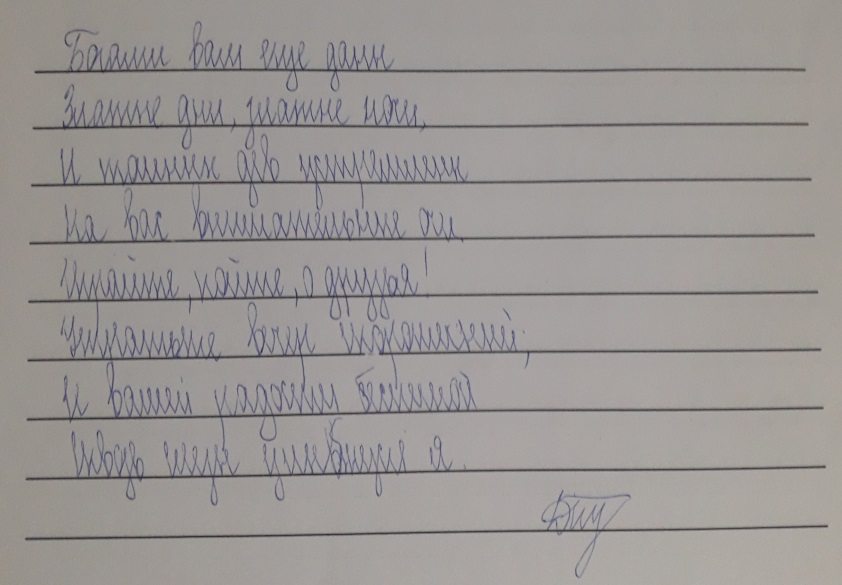 Богами вам еще даны
Златые дни, златые ночи,
И томных дев устремлены
На вас внимательные очи.
Играйте, пойте, о друзья!
Утратьте вечер скоротечный;
И вашей радости беспечной
Сквозь слезы улыбнуся я.